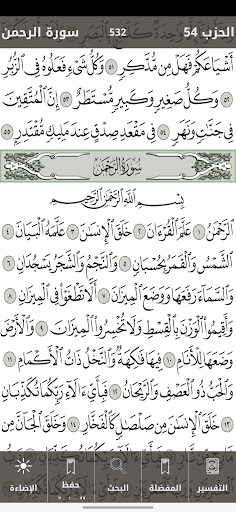 سورة الرحمن 532 الحزب 54
أَشْيَاعَكُمْ فَهَلْ مِن مُّدَّكِرٍ ٥١ وَكُلُّ شَيْءٍ فَعَلُوهُ فِي ٱلزُّبُرِ
٥٢ وَكُلُّ صَغِيرٍ وَكَبِيرٍ مُّسْتَطَرٌ ٥٣ إِنَّ ٱلْمُتَّقِينَ
فِي جَنَّٰتٍ وَنَهَرٍ ٥٤ فِي مَقْعَدِ صِدْقٍ عِندَ مَلِيكٍ مُّقْتَدِرٍ ٥٥
سُورَةُ الرَّحْمَٰن
بِسْمِ ٱللَّهِ ٱلرَّحْمَٰنِ ٱلرَّحِيمِ
ٱلرَّحْمَٰنُ ١ عَلَّمَ ٱلْقُرْءَانَ ٢ خَلَقَ ٱلْإِنسَٰنَ ٣ عَلَّمَهُ ٱلْبَيَانَ ٤
ٱلشَّمْسُ وَٱلْقَمَرُ بِحُسْبَانٍ ٥ وَٱلنَّجْمُ وَٱلشَّجَرُ يَسْجُدَانِ ٦
وَٱلسَّمَآءَ رَفَعَهَا وَوَضَعَ ٱلْمِيزَانَ ٧ أَلَّا تَطْغَوْا۟ فِي ٱلْمِيزَانِ ٨
وَأَقِيمُوا۟ ٱلْوَزْنَ بِٱلْقِسْطِ وَلَا تُخْسِرُوا۟ ٱلْمِيزَانَ ٩ وَٱلْأَرْضَ
وَضَعَهَا لِلْأَنَامِ ١٠ فِيهَا فَٰكِهَةٌ وَٱلنَّخْلُ ذَاتُ ٱلْأَكْمَامِ ١١
وَٱلْحَبُّ ذُو ٱلْعَصْفِ وَٱلرَّيْحَانُ ١٢ فَبِأَيِّ ءَالَآءِ رَبِّكُمَا تُكَذِّبَانِ
١٣ خَلَقَ ٱلْإِنسَٰنَ مِن صَلْصَٰلٍ كَٱلْفَخَّارِ ١٤ وَخَلَقَ ٱلْجَآنَّ مِن
التفسير المفضلة البحث حفظ الإضاءة